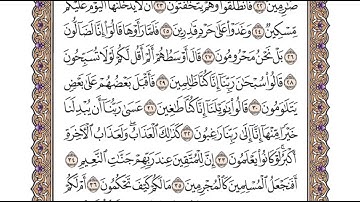 صَٰرِمِينَ ٢٢ فَٱنطَلَقُوا۟ وَهُمْ يَتَخَٰفَتُونَ ٢٣ أَن لَّا يَدْخُلَنَّهَا ٱلْيَوْمَ عَلَيْكُم
مِّسْكِينٌ ٢٤ وَغَدَوْا۟ عَلَىٰ حَرْدٍ قَٰدِرِينَ ٢٥ فَلَمَّا رَأَوْهَا قَالُوٓا۟ إِنَّا لَضَآلُّونَ
٢٦ بَلْ نَحْنُ مَحْرُومُونَ ٢٧ قَالَ أَوْسَطُهُمْ أَلَمْ أَقُل لَّكُمْ لَوْلَا تُسَبِّحُونَ
٢٨ قَالُوا۟ سُبْحَٰنَ رَبِّنَآ إِنَّا كُنَّا ظَٰلِمِينَ ٢٩ فَأَقْبَلَ بَعْضُهُمْ عَلَىٰ بَعْضٍ
يَتَلَٰوَمُونَ ٣٠ قَالُوا۟ يَٰوَيْلَنَآ إِنَّا كُنَّا طَٰغِينَ ٣١ عَسَىٰ رَبُّنَآ أَن يُبْدِلَنَا
خَيْرًا مِّنْهَآ إِنَّآ إِلَىٰ رَبِّنَا رَٰغِبُونَ ٣٢ كَذَٰلِكَ ٱلْعَذَابُ وَلَعَذَابُ ٱلْءَاخِرَةِ
أَكْبَرُ لَوْ كَانُوا۟ يَعْلَمُونَ ٣٣ إِنَّ لِلْمُتَّقِينَ عِندَ رَبِّهِمْ جَنَّٰتِ ٱلنَّعِيمِ ٣٤
أَفَنَجْعَلُ ٱلْمُسْلِمِينَ كَٱلْمُجْرِمِينَ ٣٥ مَا لَكُمْ كَيْفَ تَحْكُمُونَ ٣٦ أَمْ لَكُمْ